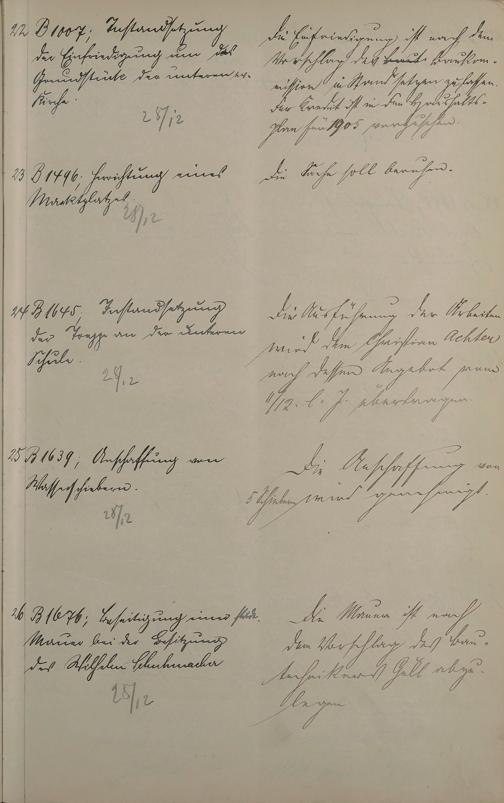 22 B 1007; Instandsetzung
der Einfriedigung um das
Grundstück der unteren ev.
Kirche.
28/12
Die Einfriedigung ist nach dem
Vorschlag der Baukom-
mission in Stand setzen zu lassen.
Der Kredit ist in den Haushalts-
plan für 1905 vorzusehen.
23 B 1496; Errichtung eines
Marktplatzes
28/12
Die Sache soll beruhen.
24 B 1645; Instandsetzung
der Treppe an der unteren
Schule.
28/12
Die Ausführung der Arbeiten
wird dem Christian Achter
nach dessen Angebot vom
11/12. l. J. übertragen.
25 B 1639; Anschaffung von
Wasserschiebern.
28/12
Die Anschaffung von
5 Schiebern wird genehmigt.
26 B 1676; Beseitigung einer
Mauer bei der Besitzung
des Wilhelm Schuhmacher
28/12
Die Mauer ist nach
dem Vorschlag des Bau-
technikers Göll abzu-
legen